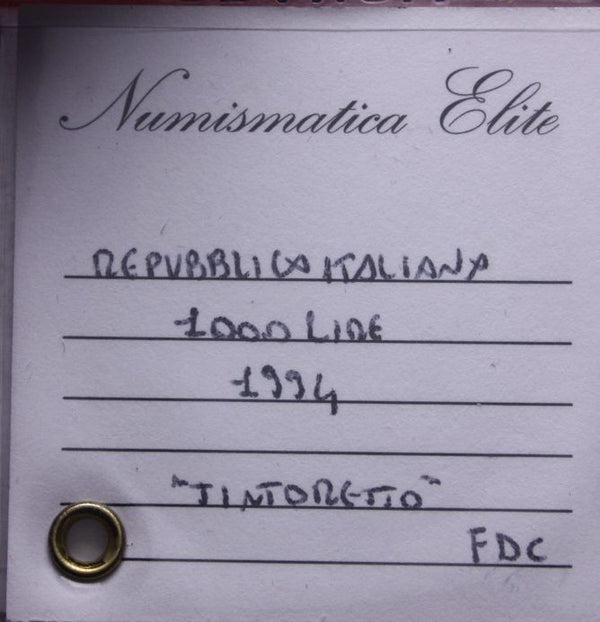 Numismatica Elite
REPUBBLICA ITALIANA
1000 LIRE
1994
"TINTORETTO"
FDC